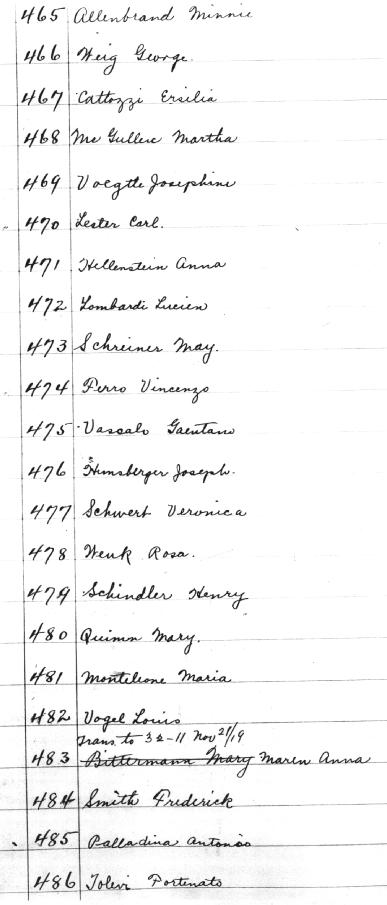 465 Allenbrand Minnie
466 Weig George.
467 Cattozzi Ersilia
468 Mc Gullen Martha
469 Voegtle Josephine
470 Lester Carl.
471 Hellenstein Anna
472 Lombardi Lucien
473 Schreiner May.
474 Ferro Vincenzo
475 Vassalo Gaentano
476 Hunsberger Joseph.
477 Schwert Veronica
478 Wenk Rosa.
479 Schindler Henry
480 Quinn Mary.
481 Monteleone Maria
482 Vogel Louis
Trans to 32-11 Nov 21/19
483 Bittermann Mary Maren Anna
484 Smith Frederick
485 Palladina Antonio
486 Portenato